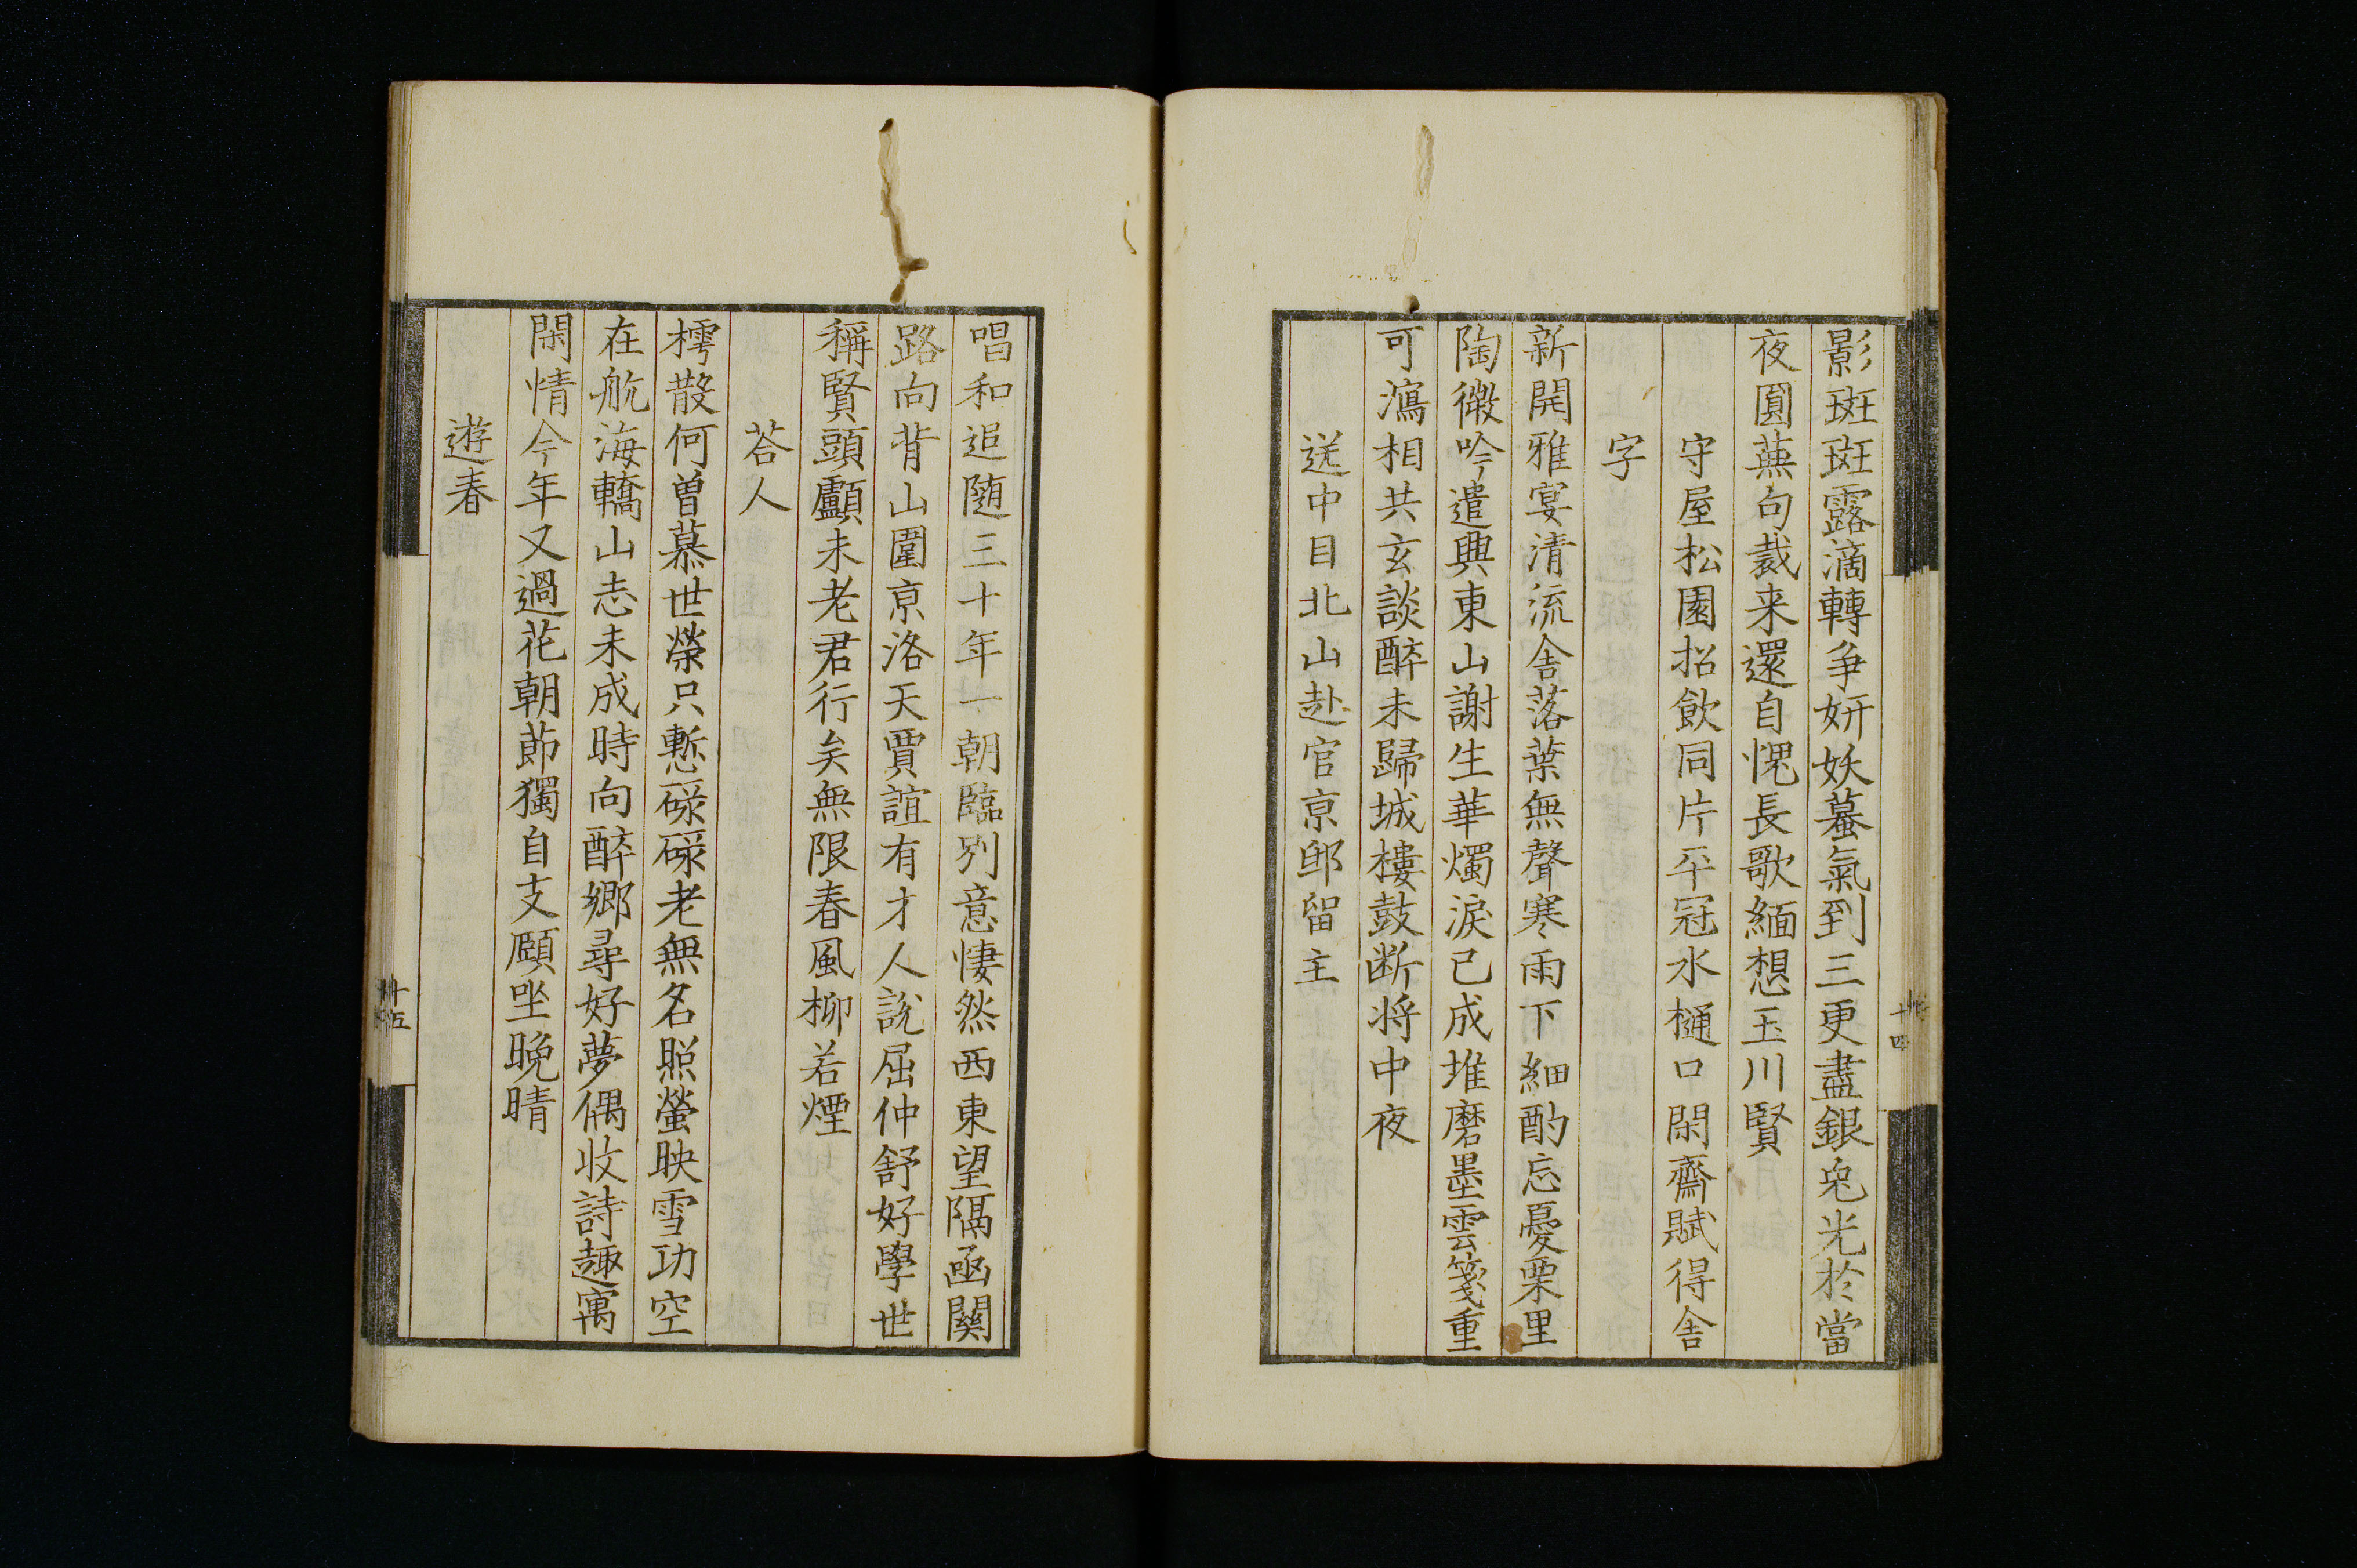 影斑斑露滴轉争妍妖蟇氣到三更盡銀兔光於當
夜圓蕪句裁来還自愧長歌緬想玉川賢
守屋松園招飲同片平冠水樋口閑齋賦得舎
字
新開雅宴清流舎落葉無聲寒雨下細酌忘憂栗里
陶微吟遣興東山謝生華燭淚已成堆磨墨雲箋重
可瀉相共玄談醉未歸城樓鼓断将中夜
送中目北山赴官京邸留主
十四
唱和追随三十年一朝臨別意悽然西東望隔函關
路向背山圍京洛天賈誼有才人說屈仲舒好學世
稱賢頭顱未老君行矣無限春風柳若煙
荅人
樗散何曽慕世榮只慙碌碌老無名照螢映雪功空
在航海轎山志未成時向醉鄉尋好夢偶收詩趣寓
閑情今年又過花朝節獨自支頤坐晩晴
遊春
十五